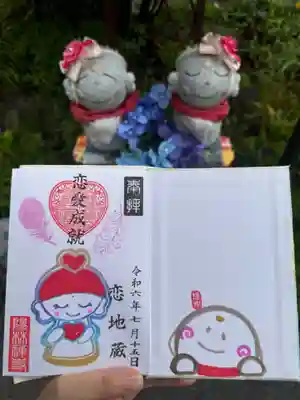 奉拝
令和六年七月十五日
恋地蔵
恋愛成就